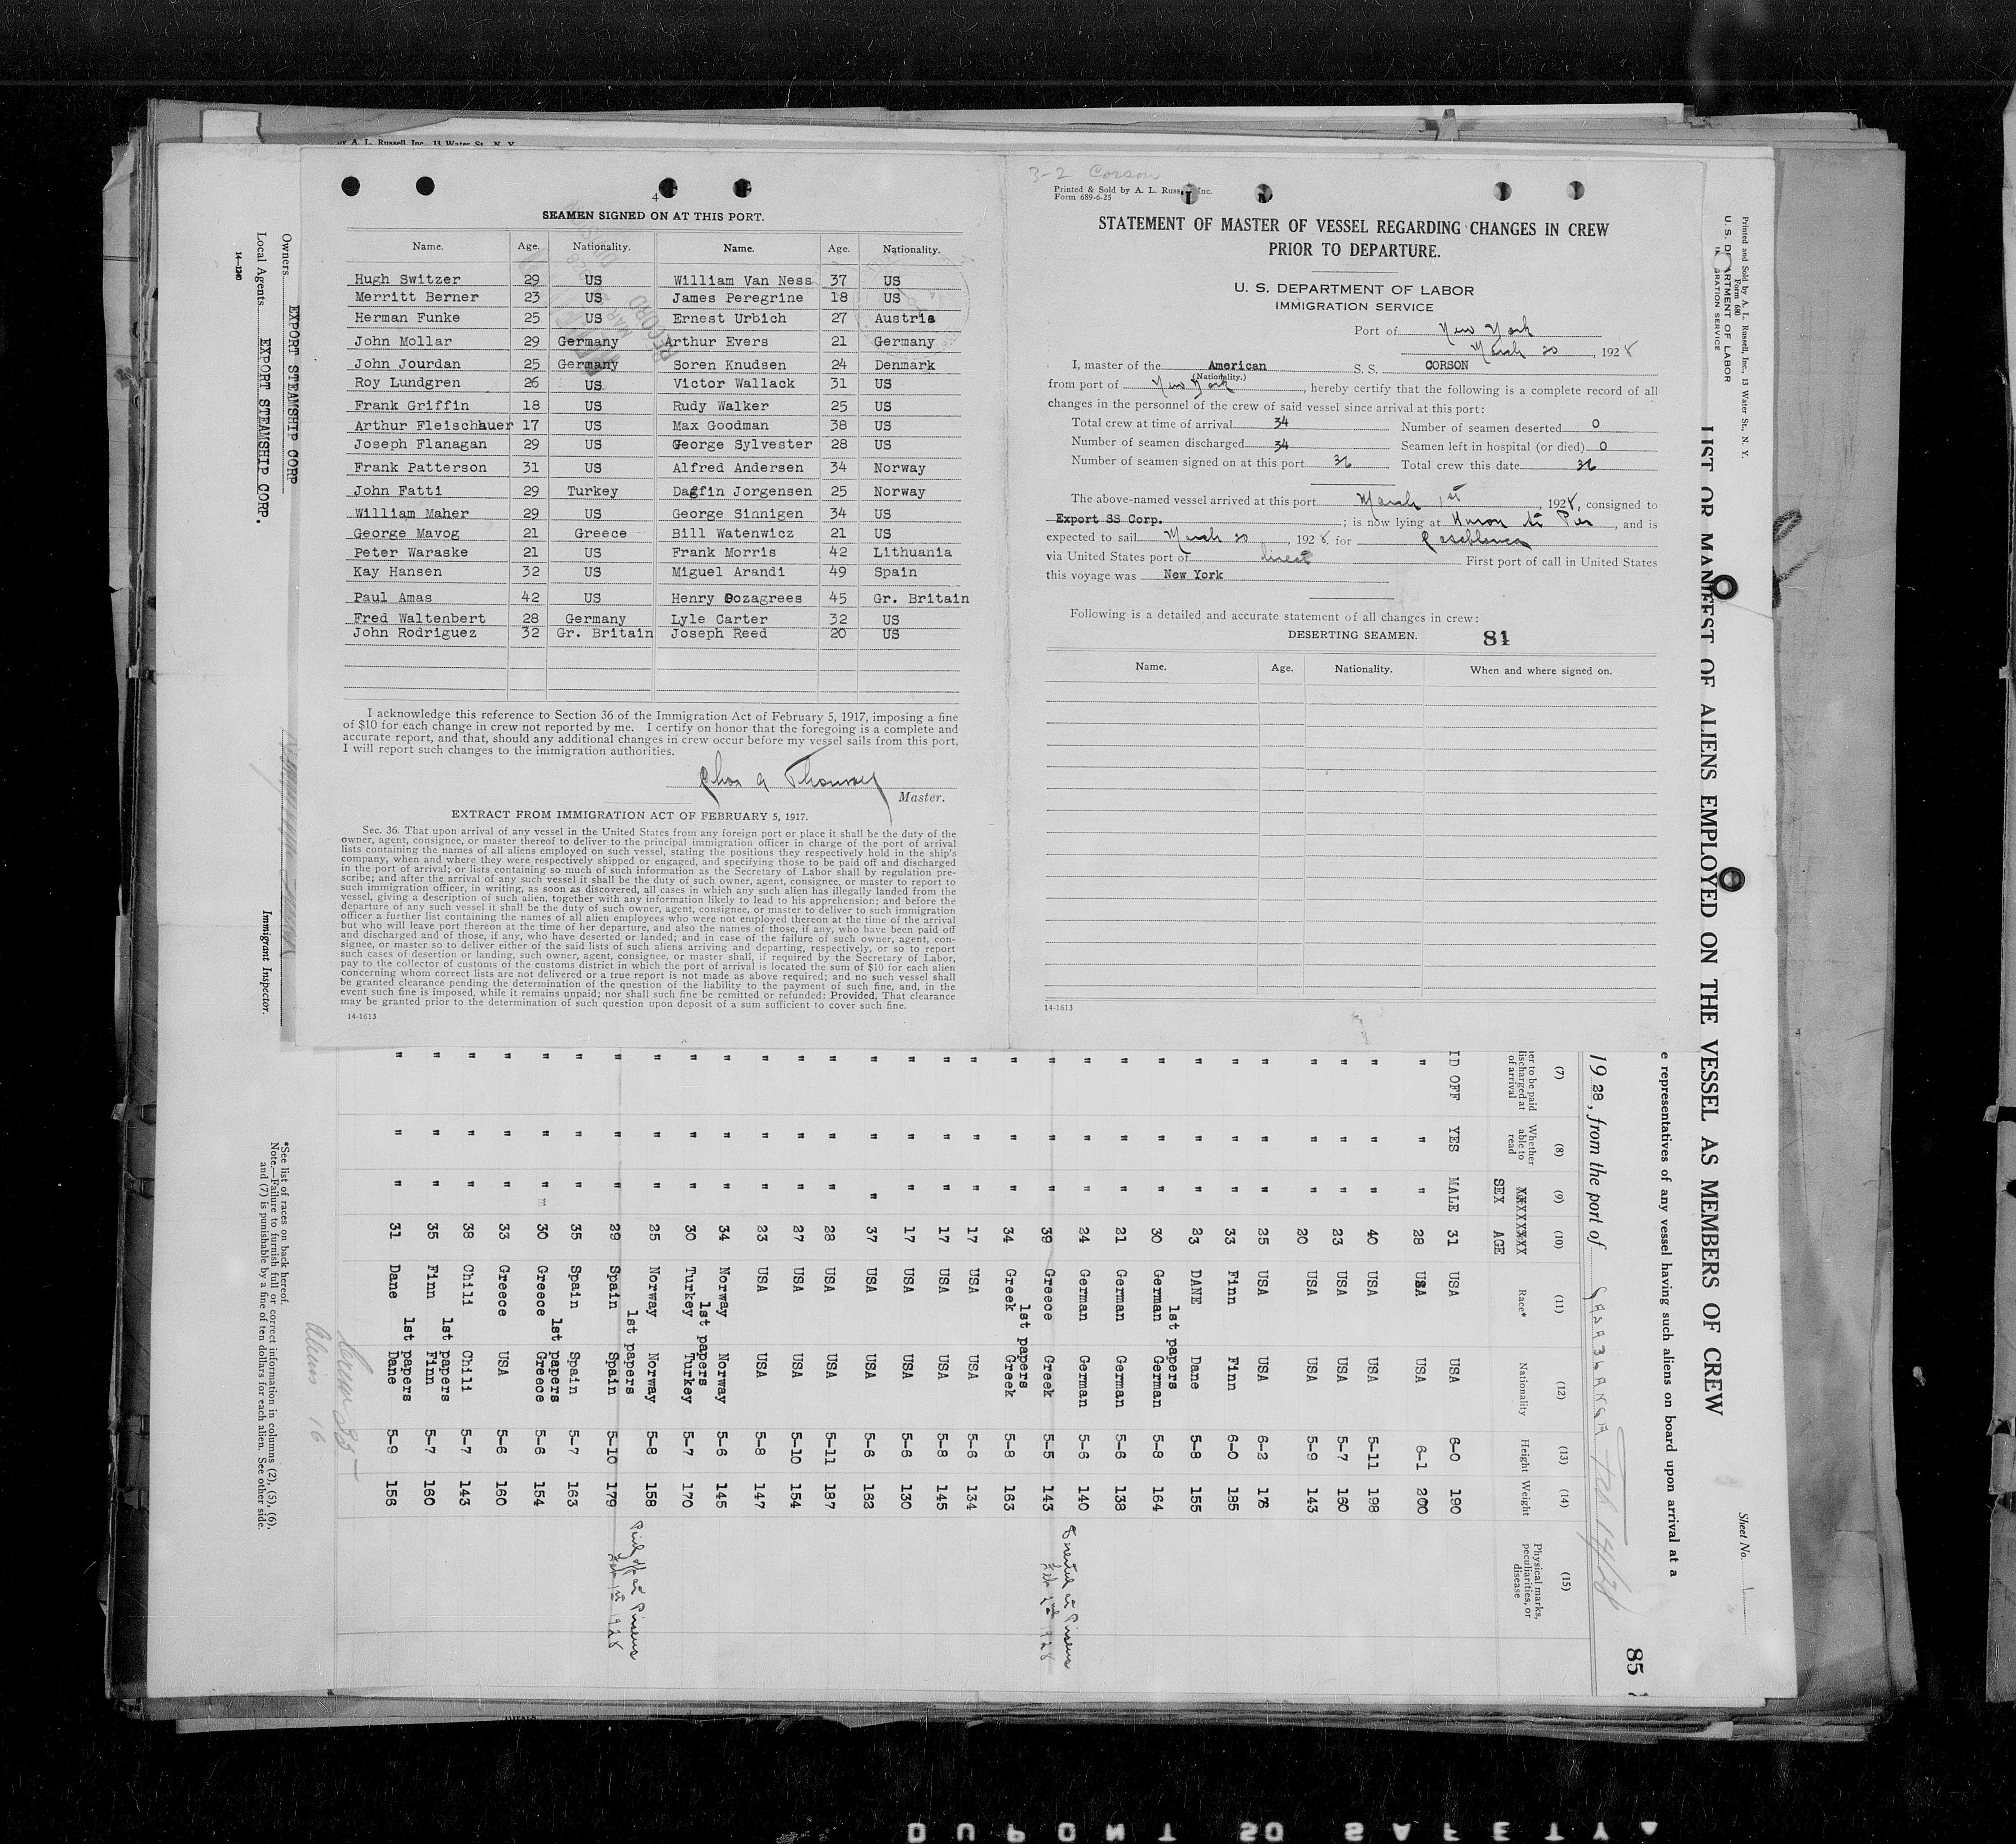 by A. L. Russell Inc. 13 Water St. N. Y.
4
SEAMEN SIGNED ON AT THIS PORT.
Name. Age. Nationality. Name. Age. Nationality.
Hugh Switzer 29 US William Van Ness 37 US
Merritt Berner 23 US James Peregrine 18 US
Herman Funke 25 US Ernest Urbich 27 Austria
John Mollar 29 Germany Arthur Evers 21 Germany
John Jourdan 25 Germany Soren Knudsen 24 Denmark
Roy Lundgren 26 US Victor Wallack 31 US
Frank Griffin 18 US Rudy Walker 25 US
Arthur Fleischauer 17 US Max Goodman 38 US
Joseph Flanagan 29 US George Sylvester 28 US
Frank Patterson 31 US Alfred Andersen 34 Norway
John Fatti 29 Turkey Dagfin Jorgensen 25 Norway
William Maher 29 US George Sinnigen 34 US
George Mavog 21 Greece Bill Watenwicz 21 US
Peter Waraske 21 US Frank Morris 42 Lithuania
Kay Hansen 32 US Miguel Arandi 49 Spain
Paul Amas 42 US Henry Dozagrees 45 Gr. Britain
Fred Waltenbert 28 Germany Lyle Carter 32 US
John Rodriguez 32 Gr. Britain Joseph Reed 20 US
I acknowledge this reference to Section 36 of the Immigration Act of February 5, 1917, imposing a fine
of $10 for each change in crew not reported by me. I certify on honor that the foregoing is a complete and
accurate report, and that, should any additional changes in crew occur before my vessel sails from this port,
I will report such changes to the immigration authorities.
Master.
EXTRACT FROM IMMIGRATION ACT OF FEBRUARY 5, 1917.
Sec. 36. That upon arrival of any vessel in the United States from any foreign port or place it shall be the duty of the
owner, agent, consignee, or master thereof to deliver to the principal immigration officer in charge of the port of arrival
lists containing the names of all aliens employed on such vessel, stating the positions they respectively hold in the ship's
company, when and where they were respectively shipped or engaged, and specifying those to be paid off and discharged
in the port of arrival; or lists containing so much of such information as the Secretary of Labor shall by regulation pre-
scribe; and after the arrival of any such vessel it shall be the duty of such owner, agent, consignee, or master to report to
such immigration officer, in writing, as soon as discovered, all cases in which any such alien has illegally landed from the
vessel, giving a description of such alien, together with any information likely to lead to his apprehension; and before the
departure of any such vessel it shall be the duty of such owner, agent, consignee, or master to deliver to such immigration
officer a further list containing the names of all alien employees who were not employed thereon at the time of the arrival
but who will leave port thereon at the time of her departure, and also the names of those, if any, who have been paid off
and discharged and of those, if any, who have deserted or landed; and in case of the failure of such owner, agent, con-
signee, or master so to deliver either of the said lists of such aliens arriving and departing, respectively, or so to report
such cases of desertion or landing, such owner, agent, consignee, or master shall, if required by the Secretary of Labor,
pay to the collector of customs of the customs district in which the port of arrival is located the sum of $10 for each alien
concerning whom correct lists are not delivered or a true report is not made as above required; and no such vessel shall
be granted clearance pending the determination of the question of the liability to the payment of such fine, and, in the
event such fine is imposed, while it remains unpaid; nor shall such fine be remitted or refunded: Provided, That clearance
may be granted prior to the determination of such question upon deposit of a sum sufficient to cover such fine.
14-1613
3-2 Corson
Printed & Sold by A. L. Russ Inc.
Form 689-6-25
STATEMENT OF MASTER OF VESSEL REGARDING CHANGES IN CREW
PRIOR TO DEPARTURE.
U. S. DEPARTMENT OF LABOR
IMMIGRATION SERVICE
Port of New York
March 20, 1928
I, master of the American S. S. CORSON
(Nationality.)
from port of New York, hereby certify that the following is a complete record of all
changes in the personnel of the crew of said vessel since arrival at this port:
Total crew at time of arrival 34 Number of seamen deserted 0
Number of seamen discharged 34 Seamen left in hospital (or died) 0
Number of seamen signed on at this port 36 Total crew this date 36
The above-named vessel arrived at this port March 1st, 1928, consigned to
Export SS Corp.; is now lying at Huron St Pier, and is
expected to sail March 20, 1928, for Casablanca
via United States port of direct First port of call in United States
this voyage was New York
Following is a detailed and accurate statement of all changes in crew:
DESERTING SEAMEN. 84
Name. Age. Nationality. When and where signed on.
14-1613
Printed and Sold by A. L. Russell, Inc., 13 Water St., N. Y.
Form 680
U. S. DEPARTMENT OF LABOR
IMMIGRATION SERVICE
Sheet No. 1
LIST OR MANIFEST OF ALIENS EMPLOYED ON THE VESSEL AS MEMBERS OF CREW
e representatives of any vessel having such aliens on board upon arrival at a
85
1928, from the port of CASABLANCA
(7) (8) (9) (10) (11) (12) (13) (14) (15)
er to be paid discharged at of arrival Whether able to read SEX AGE Race* Nationality Height Weight Physical marks, peculiarities, or disease
ID OFF YES MALE 31 USA USA 6-0 190
" " " 28 USA USA 6-1 200
" " " 40 USA USA 5-11 198
" " " 23 USA USA 5-7 160
" " " 20 USA USA 5-9 143
" " " 25 USA USA 6-2 176
" " " 33 Finn Finn 6-0 195
" " " 23 DANE Dane 5-8 155
1st papers
" " " 30 German German 5-8 164
" " " 21 German German 5-6 138
" " " 24 German German 5-6 140
" " " 39 Greece Greek 5-5 143 Deserted at Piraeus
1st papers
" " " 34 Greek Greek 5-8 163
" " " 17 USA USA 5-6 134
" " " 17 USA USA 5-8 145
" " " 17 USA USA 5-6 130
" " " 37 USA USA 5-6 162
" " " 28 USA USA 5-11 187
" " " 27 USA USA 5-10 154
" " " 23 USA USA 5-8 147
" " " 34 Norway Norway 5-6 145
1st papers
" " " 30 Turkey Turkey 5-7 170
" " " 25 Norway Norway 5-8 158
1st papers
" " " 29 Spain Spain 5-10 179 Paid off at Piraeus
Feb 1st 1928
" " " 35 Spain Spain 5-7 163
1st papers
" " " 30 Greece Greece 5-6 154
" " " 33 Greece USA 5-6 160
" " " 38 Chili Chili 5-7 143
1st papers
" " " 35 Finn Finn 5-7 160
1st papers
" " " 31 Dane Dane 5-9 156
Crew 35
Aliens 16
*See list of races on back hereof.
Note.—Failure to furnish full or correct information in columns (2), (5), (6),
and (7) is punishable by a fine of ten dollars for each alien. See other side.
Owners EXPORT STEAMSHIP CORP
Local Agents EXPORT STEAMSHIP CORP.
Immigrant Inspector.
14-1240
DUPONT SO SAFETY